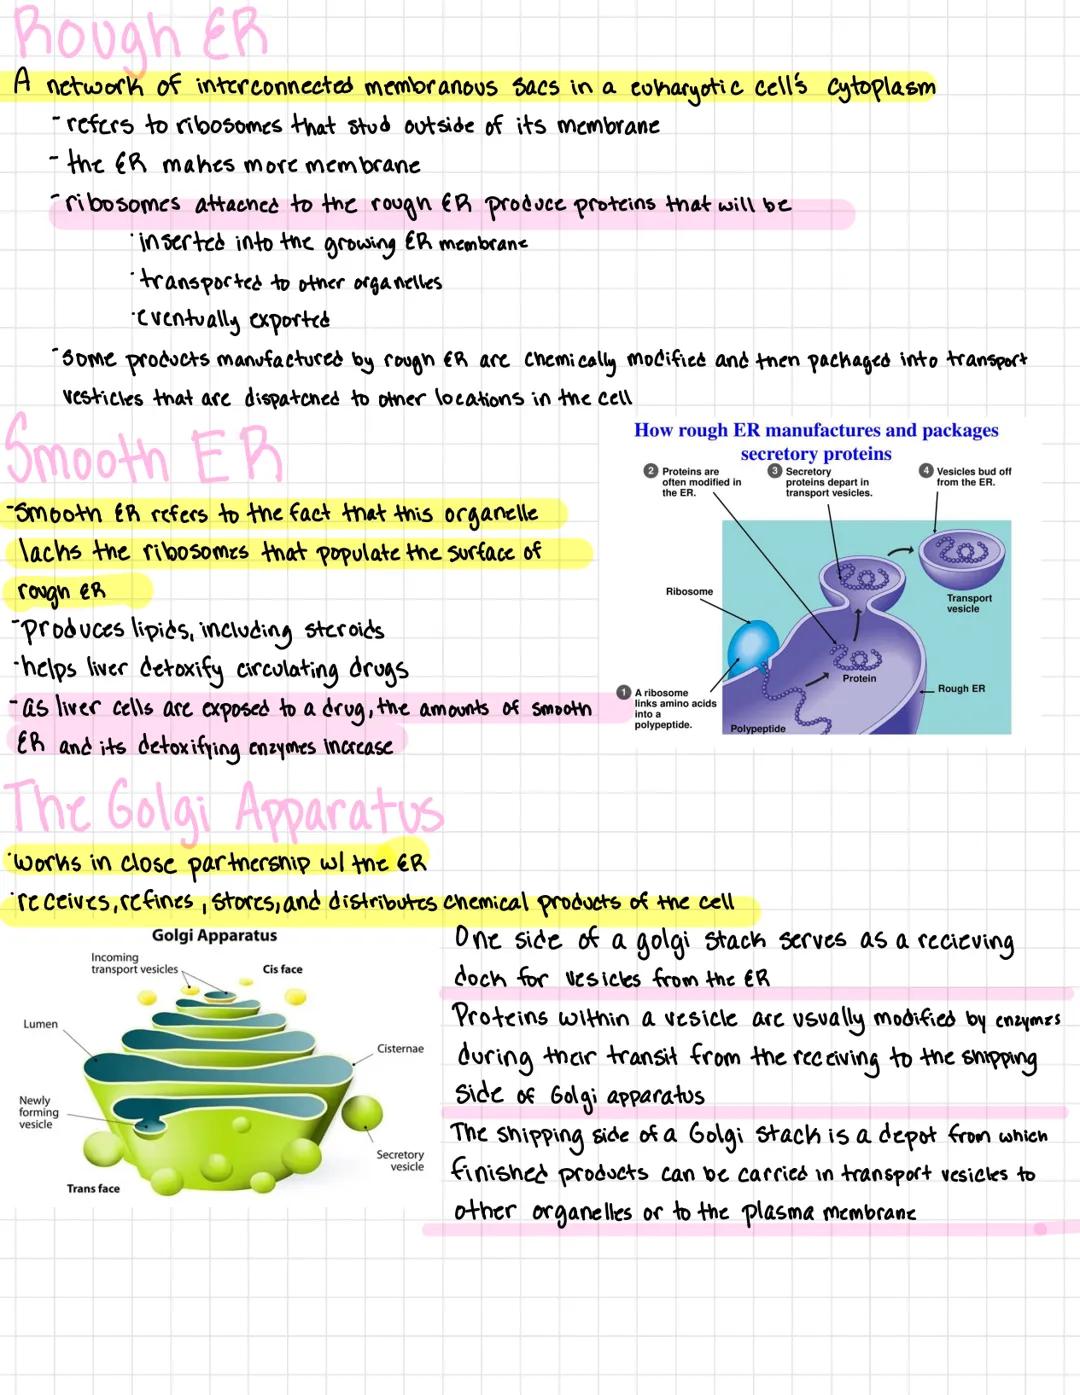 Rough ER
A network of interconnected membranous sacs in a eukaryotic cell's cytoplasm
- refers to ribosomes that stud outside of its membrane
- the ER makes more membrane
- ribosomes attached to the rough ER produce proteins that will be
· inserted into the growing ER membrane
· transported to other organelles
· eventually exported
- some products manufactured by rough ER are chemically modified and then packaged into transport
vesticles that are dispatched to other locations in the cell
Smooth ER
- Smooth ER refers to the fact that this organelle
lacks the ribosomes that populate the surface of
rough ER
- produces lipids, including steroids
- helps liver detoxify circulating drugs
- as liver cells are exposed to a drug, the amounts of smooth
ER and its detoxifying enzymes increase
How rough ER manufactures and packages
secretory proteins
2 Proteins are
often modified in
the ER.
3 Secretory
proteins depart in
transport vesicles.
4 Vesicles bud off
from the ER.
Ribosome
Transport
vesicle
Protein
Rough ER
1 A ribosome
links amino acids
into a
polypeptide.
Polypeptide
The Golgi Apparatus
· works in close partnership w/ the ER
· receives, refines, stores, and distributes chemical products of the cell
Golgi Apparatus
Incoming
transport vesicles
Cis face
Lumen
Cisternae
Newly
forming
vesicle
Secretory
vesicle
Trans face
One side of a golgi stack serves as a recieving
dock for vesicles from the ER
Proteins within a vesicle are usually modified by enzymes
during their transit from the receiving to the shipping
side of Golgi apparatus
The shipping side of a Golgi stack is a depot from which
finished products can be carried in transport vesicles to
other organelles or to the plasma membrane